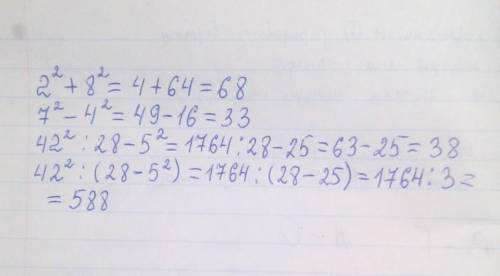 2² + 8² = 4 + 64 = 68
7² - 4² = 49 - 16 = 33
42² : 28 - 5² = 1764 : 28 - 25 = 63 - 25 = 38
42² : (28 - 5²) = 1764 : (28 - 25) = 1764 : 3 =
= 588